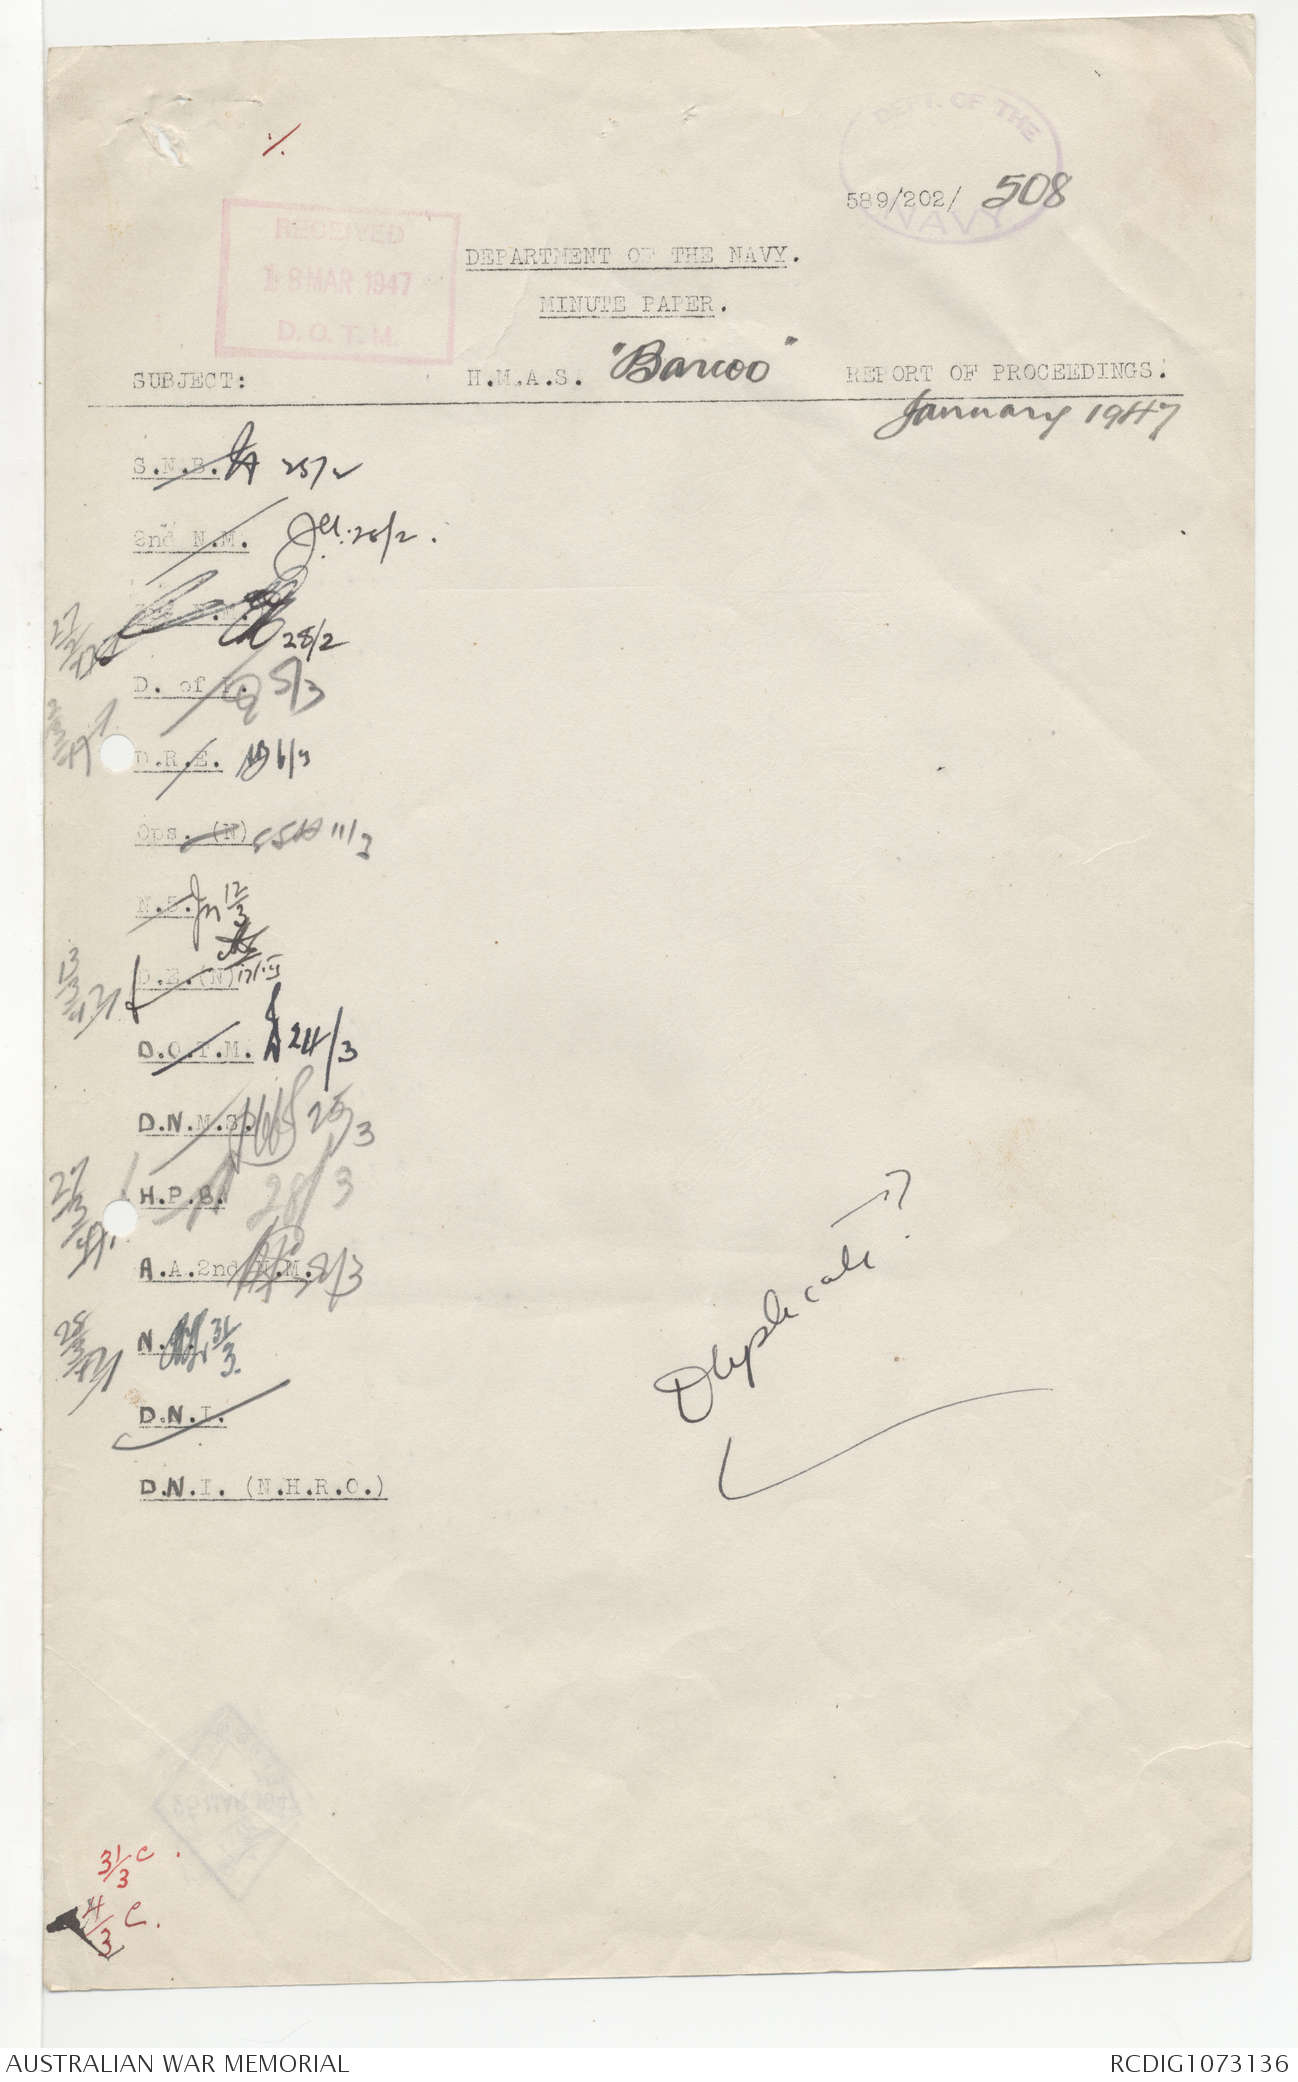 DEPT. OF THE
NAVY
589/202/ 508
RECEIVED
18 MAR 1947
D.O.T.M.
DEPARTMENT OF THE NAVY.
MINUTE PAPER.
SUBJECT: H.M.A.S. "Barcoo" REPORT OF PROCEEDINGS.
January 1947
S.N.B. 25/2
2nd N.M. 26/2.
28/2
27/2/47
D. of P. 5/3
D.R.E. 6/3
Ops. (N) 11/3
N.E. 12/3
D.E.(N) 17/3
13/3/47
D.O.T.M. 24/3
D.N.M.S. 25/3
H.P.B. 28/3
27/3/47
A.A.2nd N.M. 28/3
N. 31/3.
28/3/47
D.N.I.
D.N.I. (N.H.R.O.)
Duplicate?
25 MAR 1947
31/3 C.
4/3 C.
AUSTRALIAN WAR MEMORIAL
RCDIG1073136